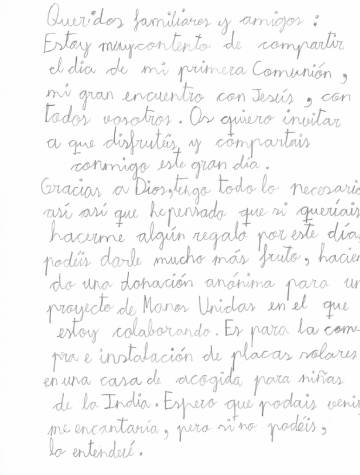 Queridos familiares y amigos:
Estoy muy contento de compartir
el día de mi primera Comunión,
mi gran encuentro con Jesús, con
todos vosotros. Os quiero invitar
a que disfrutéis y compartais
conmigo este gran día.
Gracias a Dios, tengo todo lo necesario
así así que he pensado que si queríais
hacerme algún regalo por este día,
podéis darle mucho más fruto, hacien
do una donación anónima para un
proyecto de Manos Unidas en el que
estoy colaborando. Es para la com
pra e instalación de placas solares
en una casa de acogida para niñas
de la India. Espero que podais venir
me encantaría, pero si no podéis,
lo entenderé.